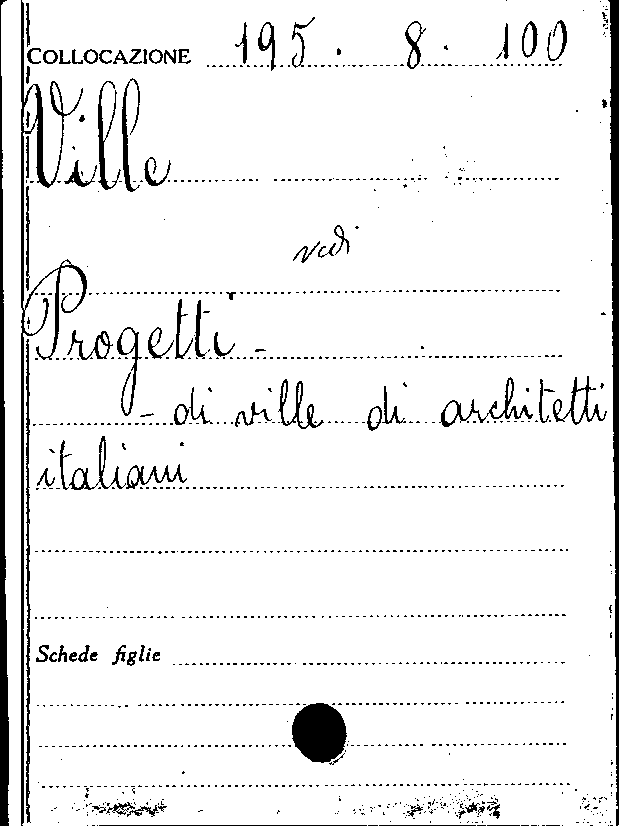 COLLOCAZIONE 195. 8. 100
Ville
vedi
Progetti -
- di ville di architetti
italiani
Schede figlie